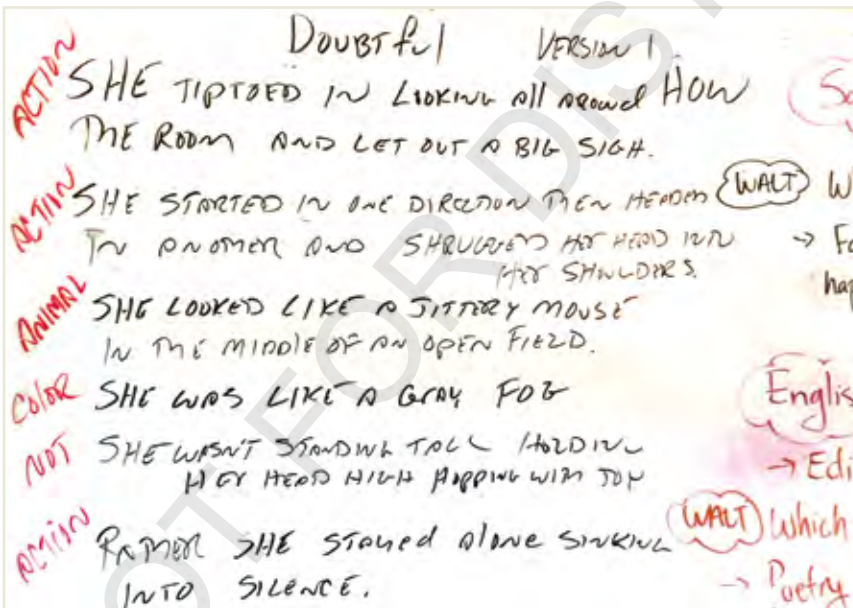 Doubtful VERSION 1.
ACTION SHE TIPTOED IN LOOKING all around HOW
THE ROOM AND LET OUT A BIG SIGH.
ACTION SHE STARTED IN ONE DIRECTION THEN HEADED WALT
IN ANOTHER AND SHRUGGED HER HEAD INTO
HER SHOULDERS.
ANIMAL SHE LOOKED LIKE A JITTERY MOUSE
IN THE MIDDLE OF AN OPEN FIELD.
COLOR SHE WAS LIKE A GRAY FOG
NOT SHE WASN'T STANDING TALL HOLDING
HER HEAD HIGH HOPPING WITH JOY
→ Edi
ACTION RATHER SHE STAYED alone SINKING WALT Which
INTO SILENCE. → Poetry